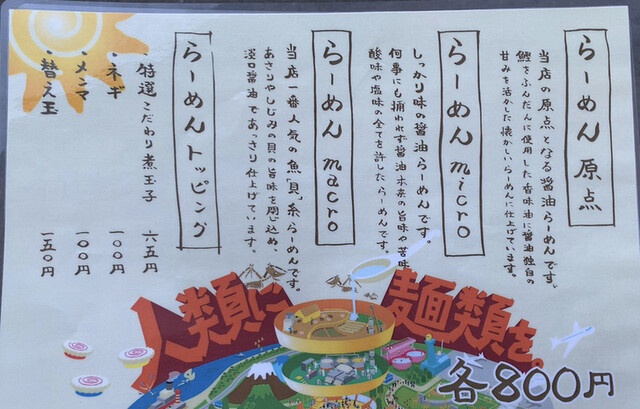 らーめん 原点
当店の原点となる醤油らーめんです。
鰹をふんだんに使用した香味油に醤油独自の
甘みを活かした懐かしいらーめんに仕上げています。
らーめん micro
しっかり味の醤油らーめんです。
何事にも捕われず醤油本来の旨味や苦味
酸味や塩味の全てを許したらーめんです。
らーめん macro
当店一番人気の魚「貝」系らーめんです。
あさりやしじみの貝の旨味を閉じ込め、
淡口醤油であっさり仕上げています。
らーめん トッピング
・特選こだわり煮玉子 六五円
・ネギ 一〇〇円
・メンマ 一〇〇円
・替え玉 一五〇円
人類に
麺類を。
各800円